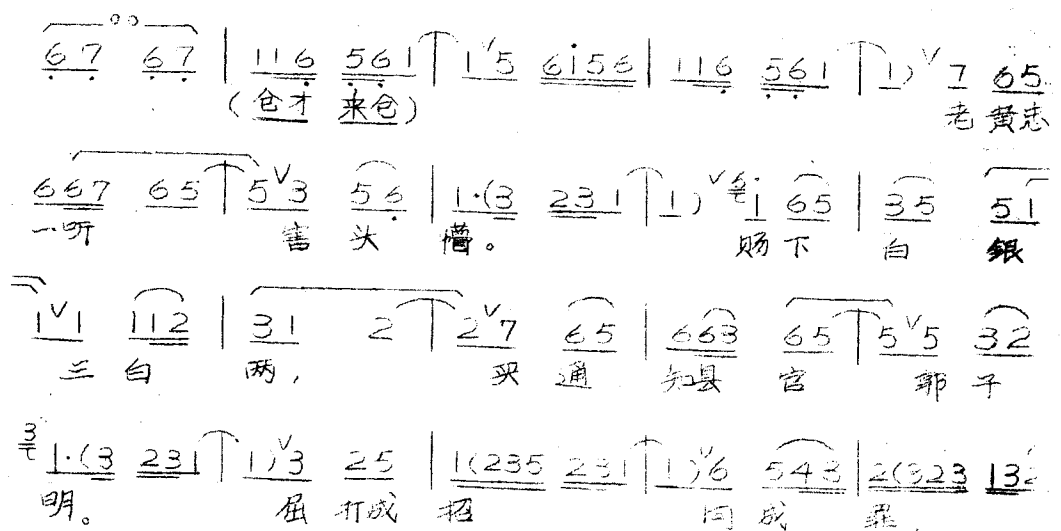 67 67 | 116 561 | 1 5 6i56 | 116 561 | 1) 7 65
(仓才 来仓) 老 黄忠
667 65 | 5 3 56 | 1·(3 231 | 1) i 65 | 35 51
一听 害 头 懵。 赐 下 白 银
1 1 112 | 31 2 | 2 7 65 | 663 65 | 5 5 32
三 白 两, 买 通 知县 官 郭 子
1·(3 231 | 1) 3 25 | 1(235 231 | 1) 6 543 | 2(323 132
明。 屈 打成 招 成